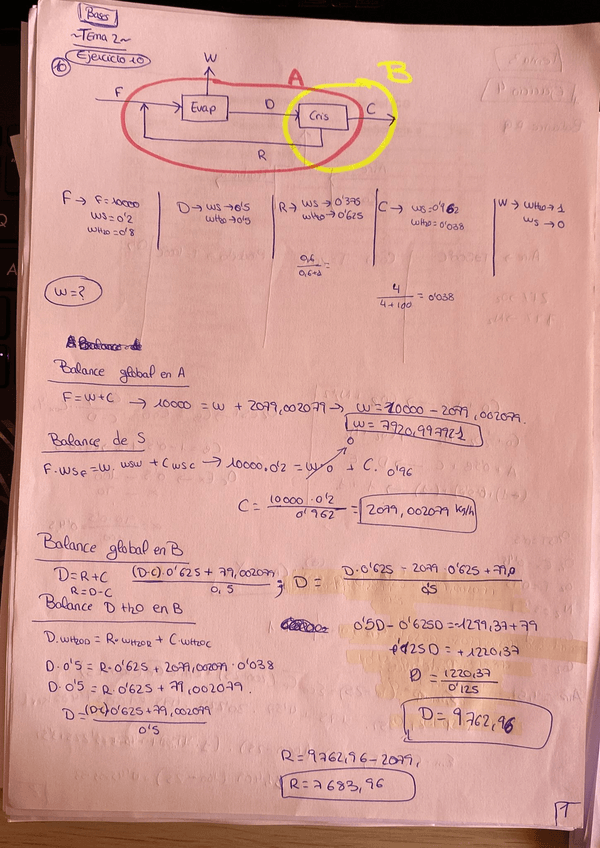 Bases
~Tema 2~
Ejercicio 10
10
W
A
B
F
Evap
D
Cris
C
R
F → F=10000
ws=0'2
wH2O=0'8
D → ws→0'5
wH2O→0'5
R → ws→0'375
wH2O→0'625
C → ws=0'962
wH2O=0'038
W → wH2O→1
ws→0
0,6
0,6+1 =
4
4+100 = 0'038
W=?
Balance global en A
F=W+C → 10000 = W + 2079,002079 → W=10000 - 2079,002079.
W = 7920,997921
Balance de S
0
F·WSF=W·WSW + CWSC → 10000·0'2 = W·0 + C·0'96
C = 10000·0'2 / 0'962 = 2079,002079 kg/h
Balance global en B
D=R+C
R=D-C
(D-C)·0'625 + 79,002079 / 0,5 ; D = D·0'625 - 2079·0'625 + 79,0 / 0'5
Balance D H2O en B
D·WH2OD = R·WH2OR + C·WH2OC
D·0'5 = R·0'625 + 2079,002079·0'038
D·0'5 = R·0'625 + 79,002079.
D = (D-C)0'625 + 79,002079 / 0'5
0'5D - 0'625D = -1299,37+79
0'125D = +1220,37
D = 1220,37 / 0'125
D = 9762,96
R = 9762,96 - 2079,
R = 7683,96
1